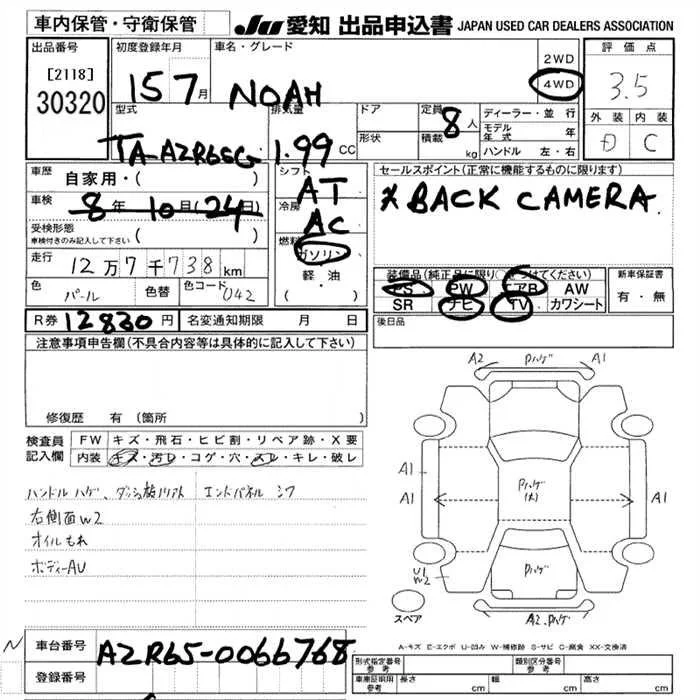 車内保管・守衛保管 JU 愛知 出品申込書 JAPAN USED CAR DEALERS ASSOCIATION
出品番号 初度登録年月 車名・グレード 2WD 評価点
[2118] 4WD
30320 15 7月 NOAH 3.5
型式 排気量 ドア 定員 8人 ディーラー・並行 外装 内装
形状 積載 kg モデル年式 年 D C
TA-AZR65G 1.99 CC ハンドル 左・右
車歴 自家用・( ) シフト AT セールスポイント(正常に機能するものに限ります)
車検 8年 10月 24日 冷房 AC ※BACK CAMERA.
受検形態
車検付きのみ記入して下さい ( ) 燃料 ガソリン
走行 12万7千738km 軽・油 装備品(純正品に限り○をつけてください) 新車保証書
色 パール 色替 色コード 042 PS PW エアB AW 有・無
SR ナビ TV カワシート
R券 12830円 名変通知期限 月 日 後日品
注意事項申告欄(不具合内容等は具体的に記入して下さい)
修復歴 有(箇所 )
検査員記入欄 FW キズ・飛石・ヒビ割・リペア跡・X要
内装 キズ・汚レ・コゲ・穴・スレ・キレ・破レ
ハンドル ハゲ、ダッシュ板ノリアト エンドパネル シワ
右側面W2
オイルもれ
ボディーAU
A2 Pハゲ A1
A1
A1 Pハゲ(大) A1
U1
W2 Pハゲ
スペア A2.Pハゲ
A-キズ E-エクボ U-凹み W-補修跡 S-サビ C-腐食 XX-交換済
N 車台番号 AZR65-0066768
登録番号
形式指定番号 参考 類別区分番号 参考
車庫証明用 参考 長さ cm 幅 cm 高さ cm